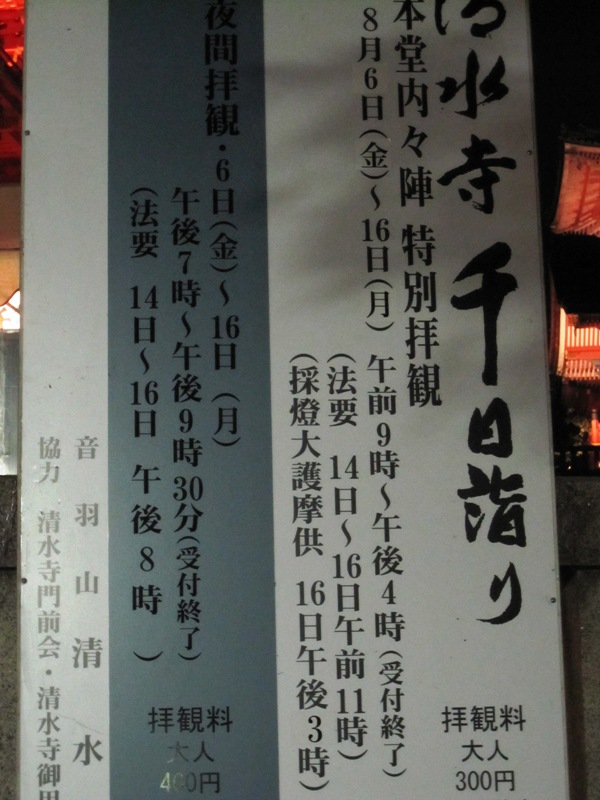 清水寺 千日詣り
本堂内々陣 特別拝観
8月6日(金)～16日(月) 午前9時～午後4時(受付終了)
(法要 14日～16日午前11時)
(採燈大護摩供 16日午後3時)
拝観料
大人
300円
夜間拝観・6日(金)～16日(月)
午後7時～午後9時30分(受付終了)
(法要 14日～16日 午後8時)
拝観料
大人
400円
音羽山 清水
協力 清水寺門前会・清水寺御用